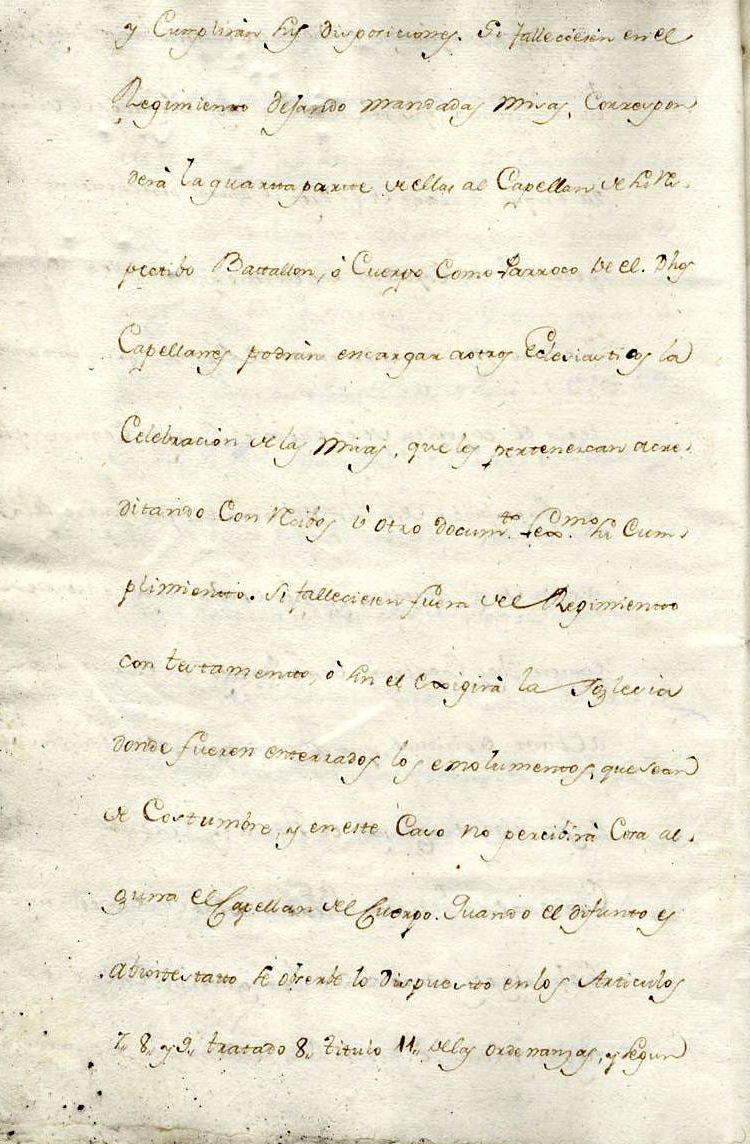 y Cumpliràn sus disposiciones. Si falleciesen en el
Regimiento dejando mandadas Misas, Correspon
derà la quarta parte de ellas al Capellan de su Res-
pectibo Battallon, ò Cuerpo Como Parroco de el. Dhos
Capellanes podràn encargar aotros Eclesiasticos la
Celebracion de las Misas, que les pertenezcan acre-
ditando Con Recibos ù otro docum.to feox.mo su Cum-
plimiento. Si falleciesen fuera del Regimiento
con testamento, ò sin el exigirà la Iglesia
donde fueren enterrados los emolumentos, que sean
de Costumbre, y en este Caso no percibirà Cosa al-
guna el Capellan del Cuerpo. Quando el difunto es
abintestatto se observe lo Dispuesto en los Articulos
7,, 8,, y 9,, tratado 8,, titulo 11,, de las ordenanzas, y segun